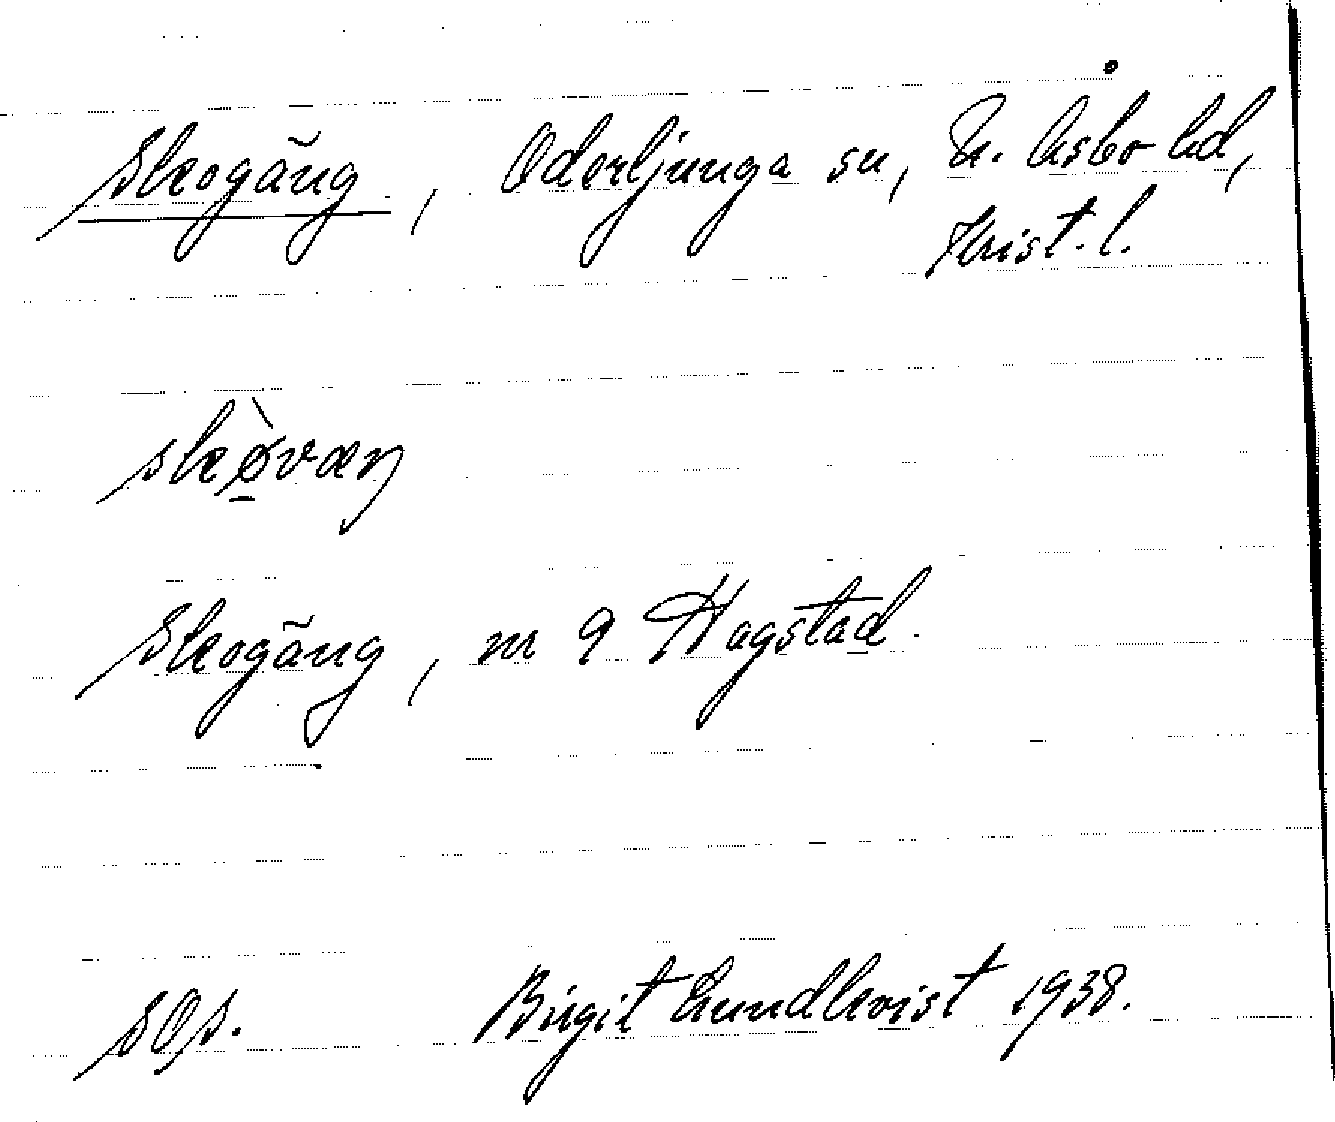 Skogäng, Oderljunga sn, N. Åsbo hd,
Krist. l.
skø̱̀væŋ
Skogäng, m 9 Hagstad.
sOs. Birgit Lundkvist 1938.